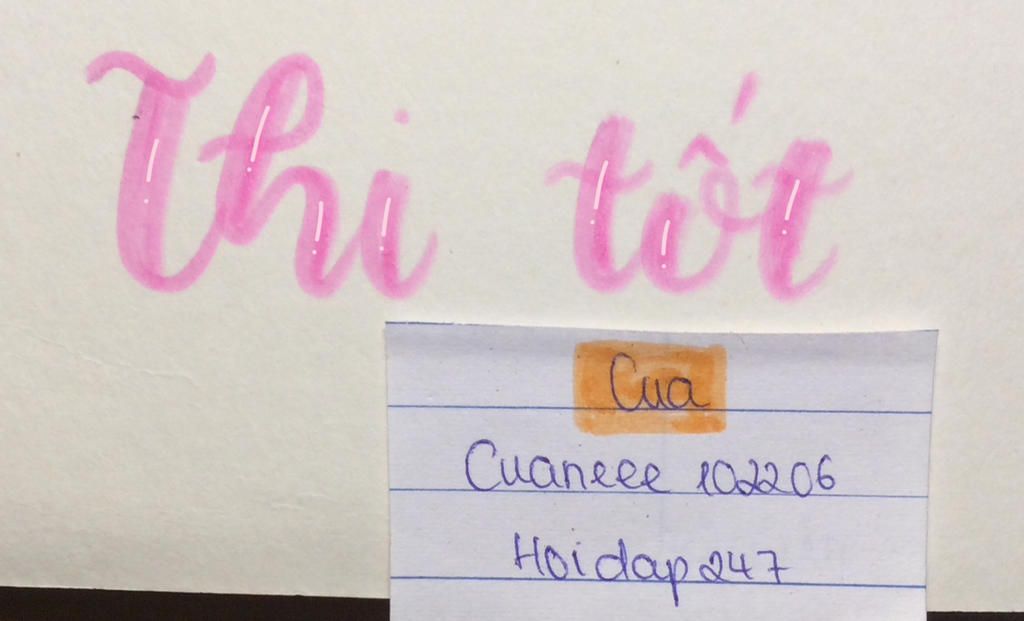 Thi tốt
Cua
Cuaneee 102206
Hoidap247